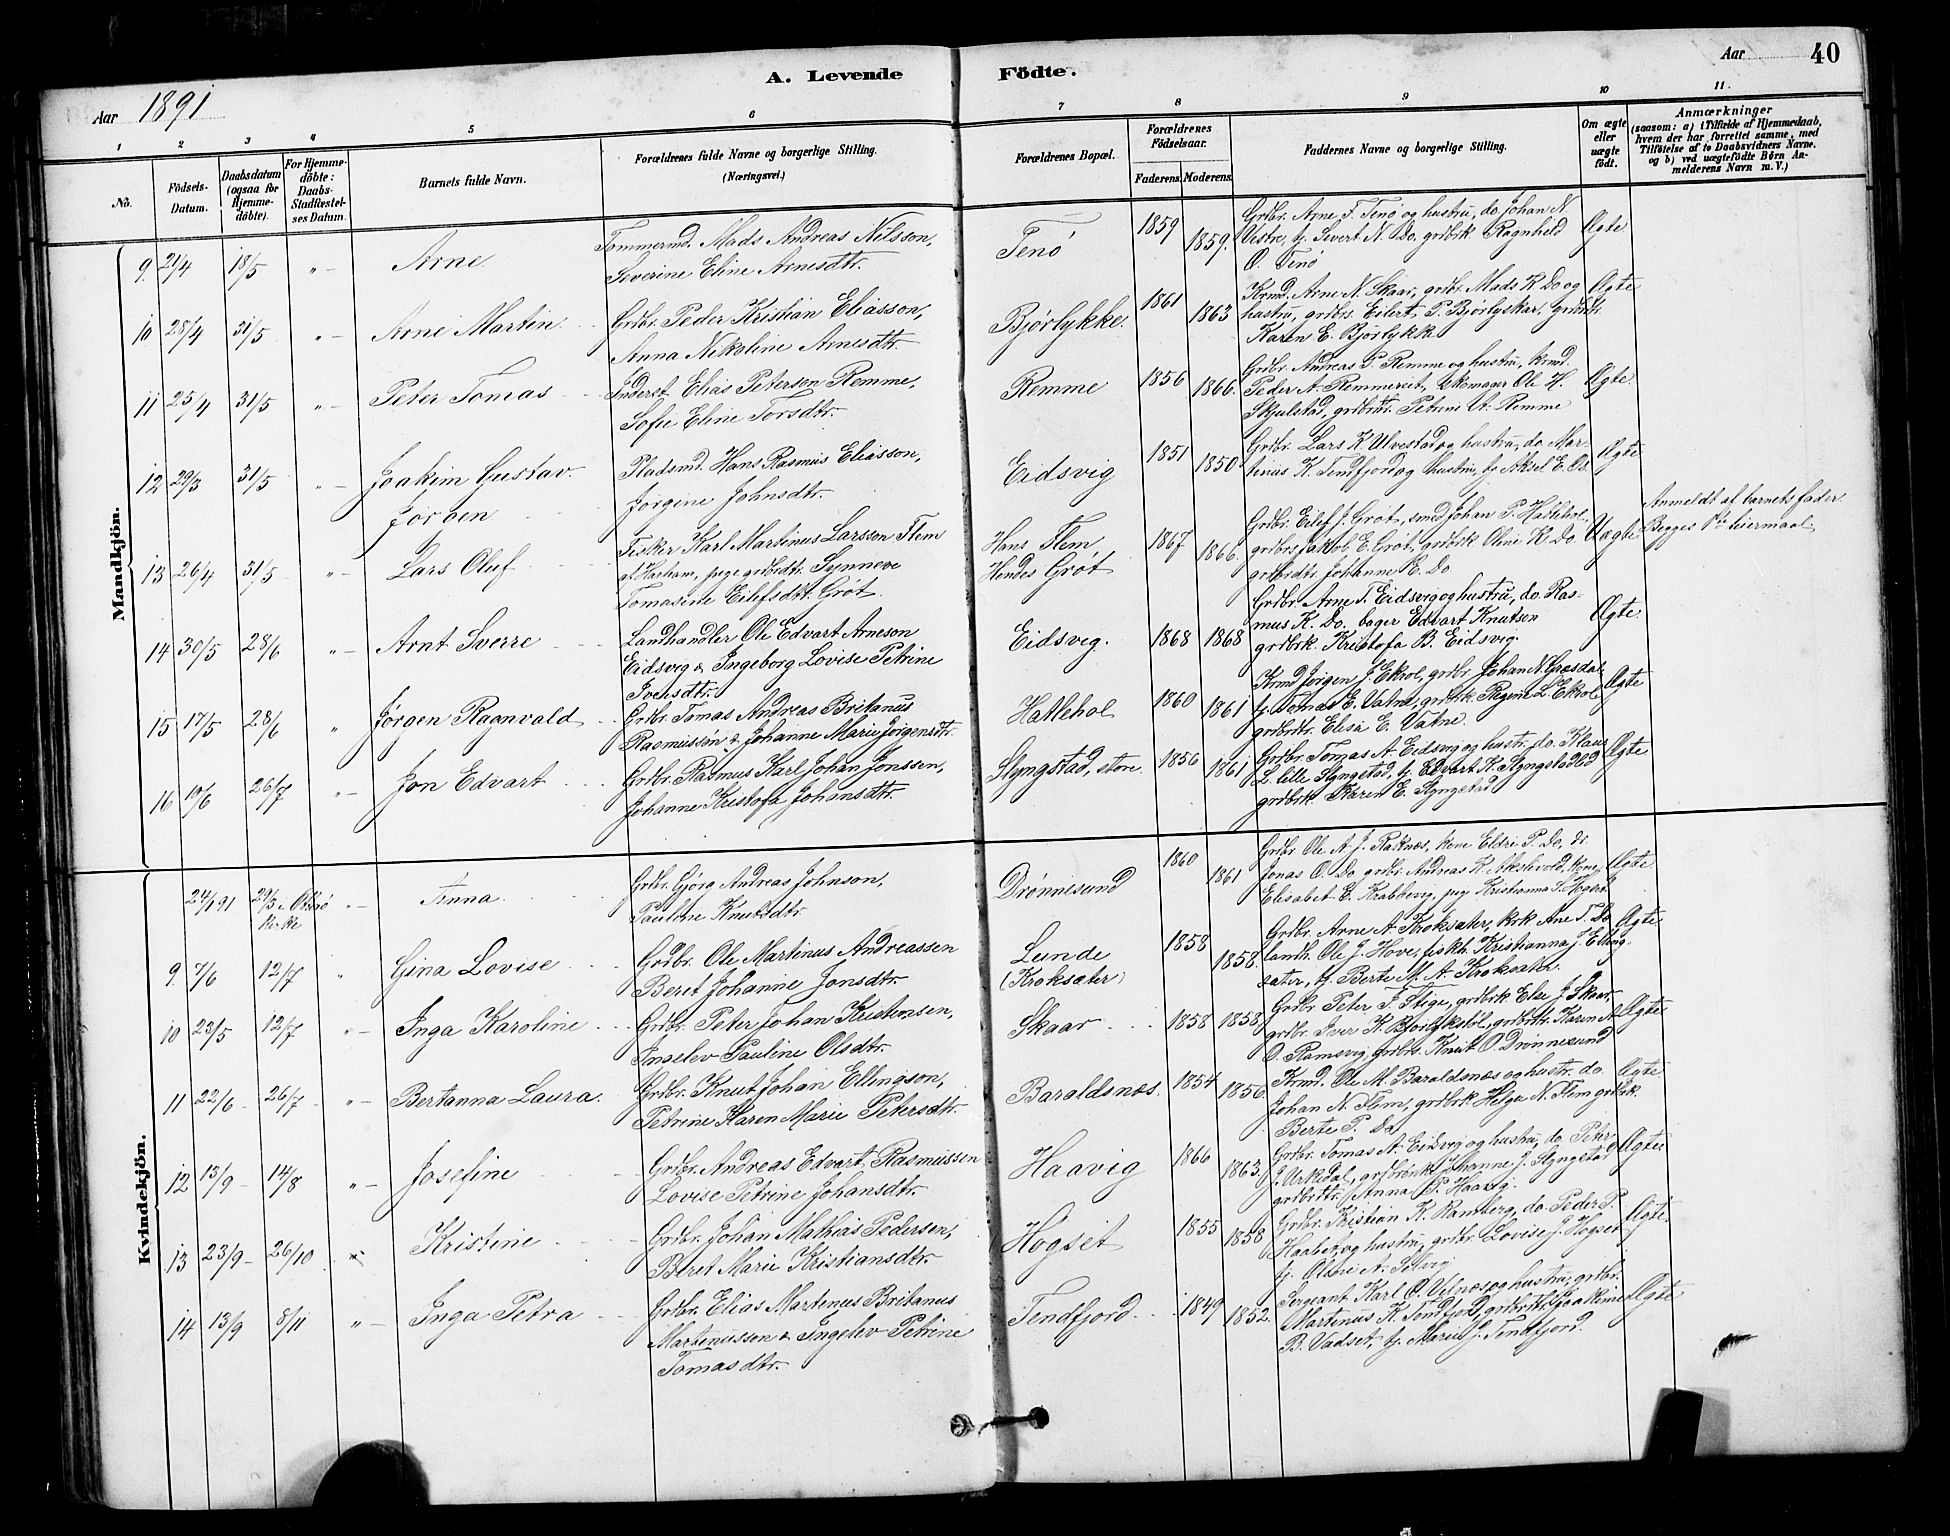 A. Levende Födte.
Aar 1891
Aar 40
1 2 3 4 5 6 7 8 9 10 11.
No.
Födsels-Datum.
Daabsdatum (ogsaa for Hjemme-döbte).
For Hjemme-döbte: Daabs-Stadfæstel-ses Datum.
Barnets fulde Navn.
Forældrenes fulde Navne og borgerlige Stilling. (Næringsvei.)
Forældrenes Bopæl.
Forældrenes Födselsaar.
Faderens. Moderens.
Faddernes Navne og borgerlige Stilling.
Om ægte eller uægte födt.
Anmærkninger (saasom: a) i Tilfælde af Hjemmedaab, hvem der har forrettet samme, med Tilföielse af to Daabsvidners Navne. og b) ved uægtefödte Børn An-melderens Navn m. V.)
Mandkjön.
9. 21/4 18/5 " Arne.
Tømmermd. Mads Andreas Nilsson,
Severine Eline Arnesdtr.
Tenø 1859 1859.
Grdbr. Arne T. Tenø og hustru, do. Johan N.
Vestre, tj. Sivert N. Do. grdbrk Ragnhild
O. Tenø
Ægte
10 28/4 31/5 " Arne Martin
Grdbr. Peder Kristian Eliasson,
Anna Nikoline Arnesdtr.
Bjørlykke. 1861 1863
Krmd. Arne N. Skaar, grdbr. Mads K. Do og
hustru, grdbrs. Eilert P. Bjørlyskar,
Karen E. Bjørlykk
Ægte
11 25/4 31/5 " Peter Tomas
Inderst Elias Petersen Remme,
Sofie Eline Torsdtr.
Remme 1856 1866.
Grdbr. Andreas P. Remme og hustru, krmd.
Peder A. Remmereit, skomager Ole H.
Skjelstad, grdbrdtr. Petrine A. Remme
Ægte
12 29/3 31/5 " Joakim Gustav
Jørgen
Pladsmd. Hans Rasmus Eliasson,
Jørgine Johnsdtr.
Eidsvig 1851 1850
Grdbr. Lars K. Ulvestad og hustru, do. Mar-
tinus K. Tendfjord og hustru, tj. Aksel E. Do.
Ægte
13 26/4 31/5 " Lars Oluf
Fisker Karl Martinus Larsson Flem
af Harham, pige grdbrdtr. Synneve
Tomasine Eilefsdtr. Grøt
Hans Flem
Hendes Grøt 1867 1866.
Grdbr. Eilef J. Grøt, smed Johan P. Hatlehol,
grdbrs. Jakob E. Grøt, grdbrk Oline K. Do.
grdbrdtr. Johanne E. Do
Uægte
Anmeldt af barnets fader
Begges 1ste leiermaal
14 30/5 28/6 " Arnt Sverre
Landhandler Ole Edvart Arneson
Eidsvig & Ingeborg Lovise Petrine
Iversdtr.
Eidsvig. 1868 1868
Grdbr. Arne T. Eidsvig og hustru, do. Ras-
mus K. Do. bager Edvart Knutsen
grdbrk. Kristofa B. Eidsvig.
Ægte.
15 17/5 28/6 " Jørgen Ragnvald
Grdbr. Tomas Andreas Britanus
Rasmussøn & Johanne Marie Jørgensdtr.
Hatlehol 1860 1861
Krmd Jørgen J. Ekrol, grdbr. Johan N. Græsdal
tj. Tomas E. Vatne, grdbrk. Regine L. Ekrol
grdbrdtr. Elisa E. Vatne.
Ægte
16 10/6 26/7 " Jon Edvart
Grdbr. Rasmus Karl Johan Jonssen,
Johanne Kristofa Johansdtr.
Slyngstad, store 1856 1861
Grdbr. Tomas A. Eidsvig og hustr. do. Klaus
L. Lille Slyngstad, tj. Edvart K. Slyngstadlid
grdbrk. Karen E. Slyngstad
Ægte
Kvindekjön.
24/1 91 29/3 i Østnæs Kirke " Anna
Grdbr. Gjørg Andreas Johnson,
Pauline Knutsdtr.
Drønnesund 1860 1861
Grdbr. Ole A. J. Raknæs, kone Eldri P. Do, dr.
Jonas O. Do. grdbr. Andreas R. Akslevold, kone
Elisabet E. Krabbevig, pige Kristianna S.
Ægte
9. 7/6 12/7 " Gina Lovise
Grdbr. Ole Martinus Andreassen
Beret Johanne Jonsdtr.
Lunde
(Kroksæter) 1858 1858.
Grdbr. Arne A. Kroksæter, krk Ane T. Do
landh. Ole J. Hove, fiskh. Kristianna J. Elling-
sæter, tj. Berte M. A. Kroksæter
Ægte
10 23/5 12/7 " Inga Karoline
Grdbr. Peter Johan Kristensen,
Ingelev Pauline Olsdtr.
Skaar 1858 1858.
Grdbr. Peter F. Stige, grdbrk Else J. Skaar,
grdbr. Iver K. Bjørlykstøl, grdbrdtr. Karen A.
O. Ramsvig, grdbrs. Knut O. Drønnesund
Ægte
11 22/6 26/7 " Bertanna Laura.
Grdbr. Knut Johan Ellingson,
Petrine Karen Marie Petersdtr.
Baraldsnæs. 1854 1856.
Krmd. Ole M. Baraldsnæs og hustr. do.
Johan N. Flem, grdbrk Helga N. Flem grdbrk
Berte P. Do
Ægte
12 13/9 14/8 " Josefine
Grdbr. Andreas Edvart Rasmussen
Lovise Petrine Johansdtr.
Haavig 1866 1863.
Grdbr. Tomas A. Eidsvig og hustru, do. Peter
J. Urkedal, grdbrk Johanne J. Slyngstad
grdbrdtr. Anna P. Haavig.
Ægte
13 23/9 26/10 " Kristine
Grdbr. Johan Mathias Pedersen,
Beret Marie Kristiansdtr.
Hogset 1855 1858
Grdbr. Kristian K. Ramberg, do. Peder P.
Haabet og hustru, grdbr. Lovise J. Hogset
tj. Oline A. Selvig
Ægte.
14 13/9 8/11 " Inga Petra
Grdbr. Elias Martinus Britanus
Martinusson & Ingelev Petrine
Tomasdtr.
Tendfjord. 1849 1852.
Sergeant Karl O. Velnæs og hustru, grdbr.
Martinus K. Tendfjord, grdbrdtr. Joakime
B. Vadset, tj. Marie J. Tendfjord.
Ægte